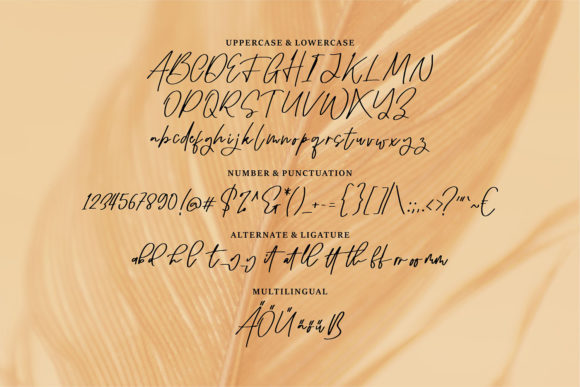 UPPERCASE & LOWERCASE
ABCDEFGHIJKLMN
OPQRSTUVWXYZ
abcdefghijklmnopqrstuvwxyz
NUMBER & PUNCTUATION
1234567890!@#$%^&*()_+-={}[]|\:;,.<>?'"`~€
ALTERNATE & LIGATURE
abd h l t_y y it at ll tt th ff rr oo mm
MULTILINGUAL
ÄÖÜäöüß